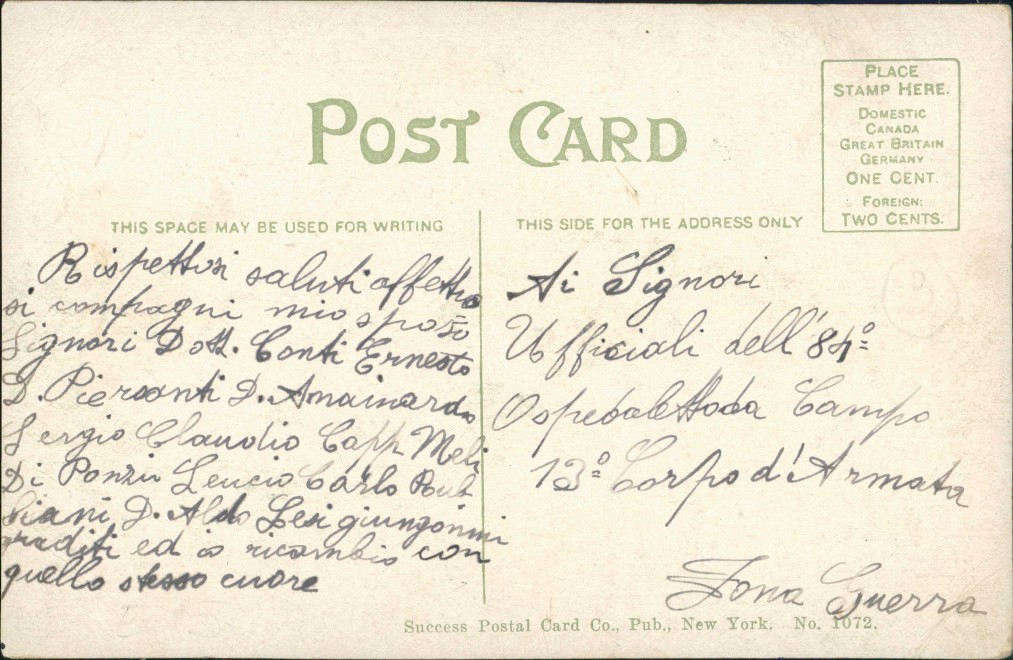 POST CARD
PLACE
STAMP HERE.
DOMESTIC
CANADA
GREAT BRITAIN
GERMANY
ONE CENT.
FOREIGN:
TWO CENTS.
THIS SPACE MAY BE USED FOR WRITING
THIS SIDE FOR THE ADDRESS ONLY
Rispettosi saluti affettuo
si compagni mio sposo
Signori Dott. Conti Ernesto
D. Piersanti D. Amainardo
Sergio Claudio Capp Meli
Di Ponziu Leucio Carlo
D. Aldo Lesi giungonmi
graditi ed io ricambio con
quello stesso cuore
Ai Signori
Ufficiali dell'84º
Ospedaletto da Campo
13º Corpo d'Armata
Zona Guerra
3
Success Postal Card Co., Pub., New York. No. 1072.